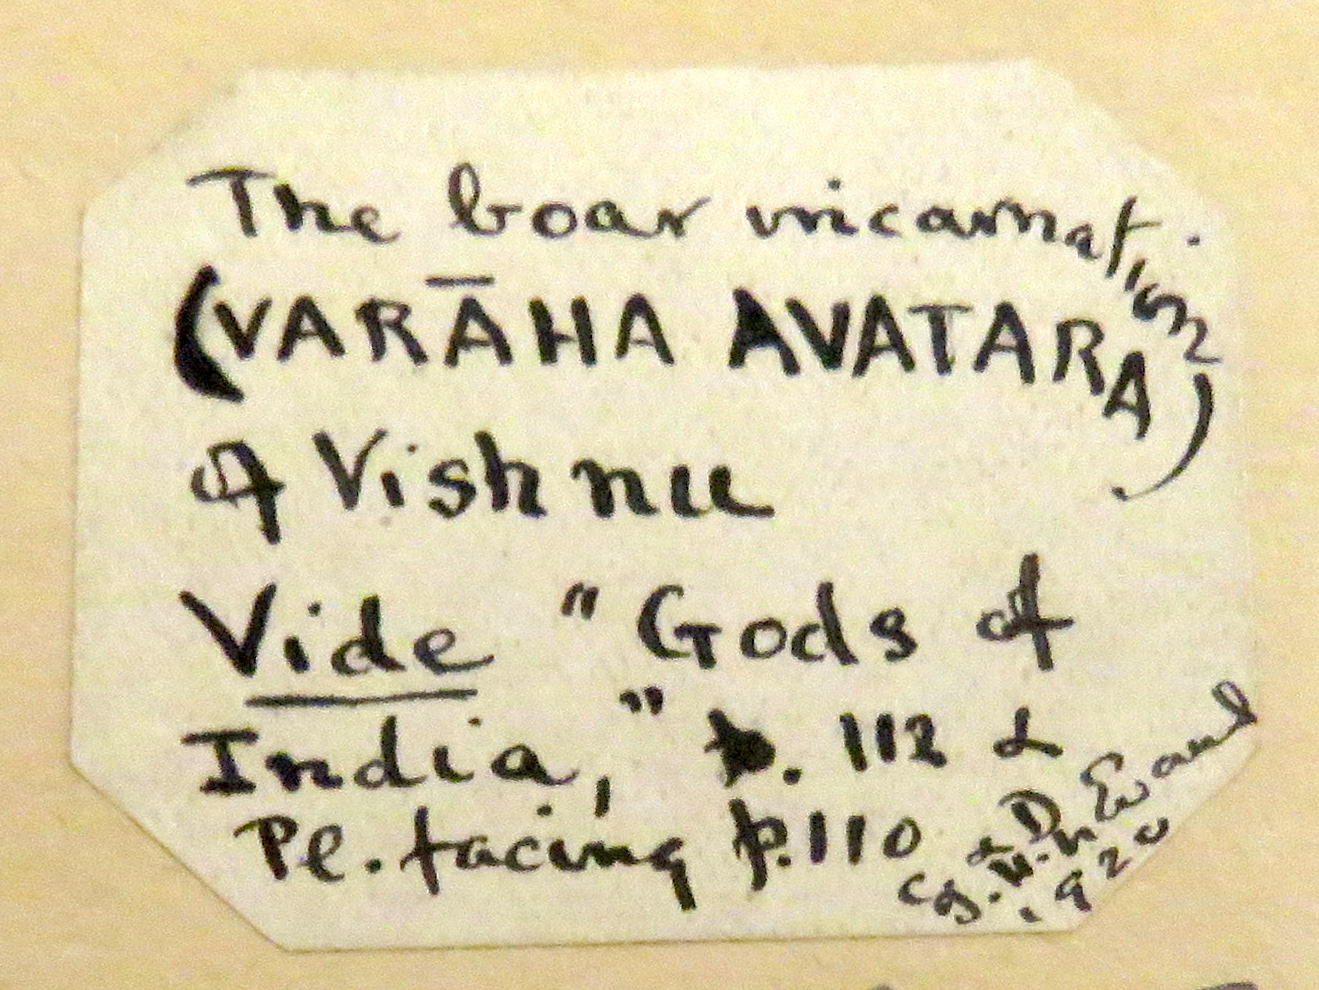 The boar incarnation
(VARĀHA AVATARA)
of Vishnu
Vide "Gods of
India," p. 112 &
Pl. facing p. 110
Evans
1920